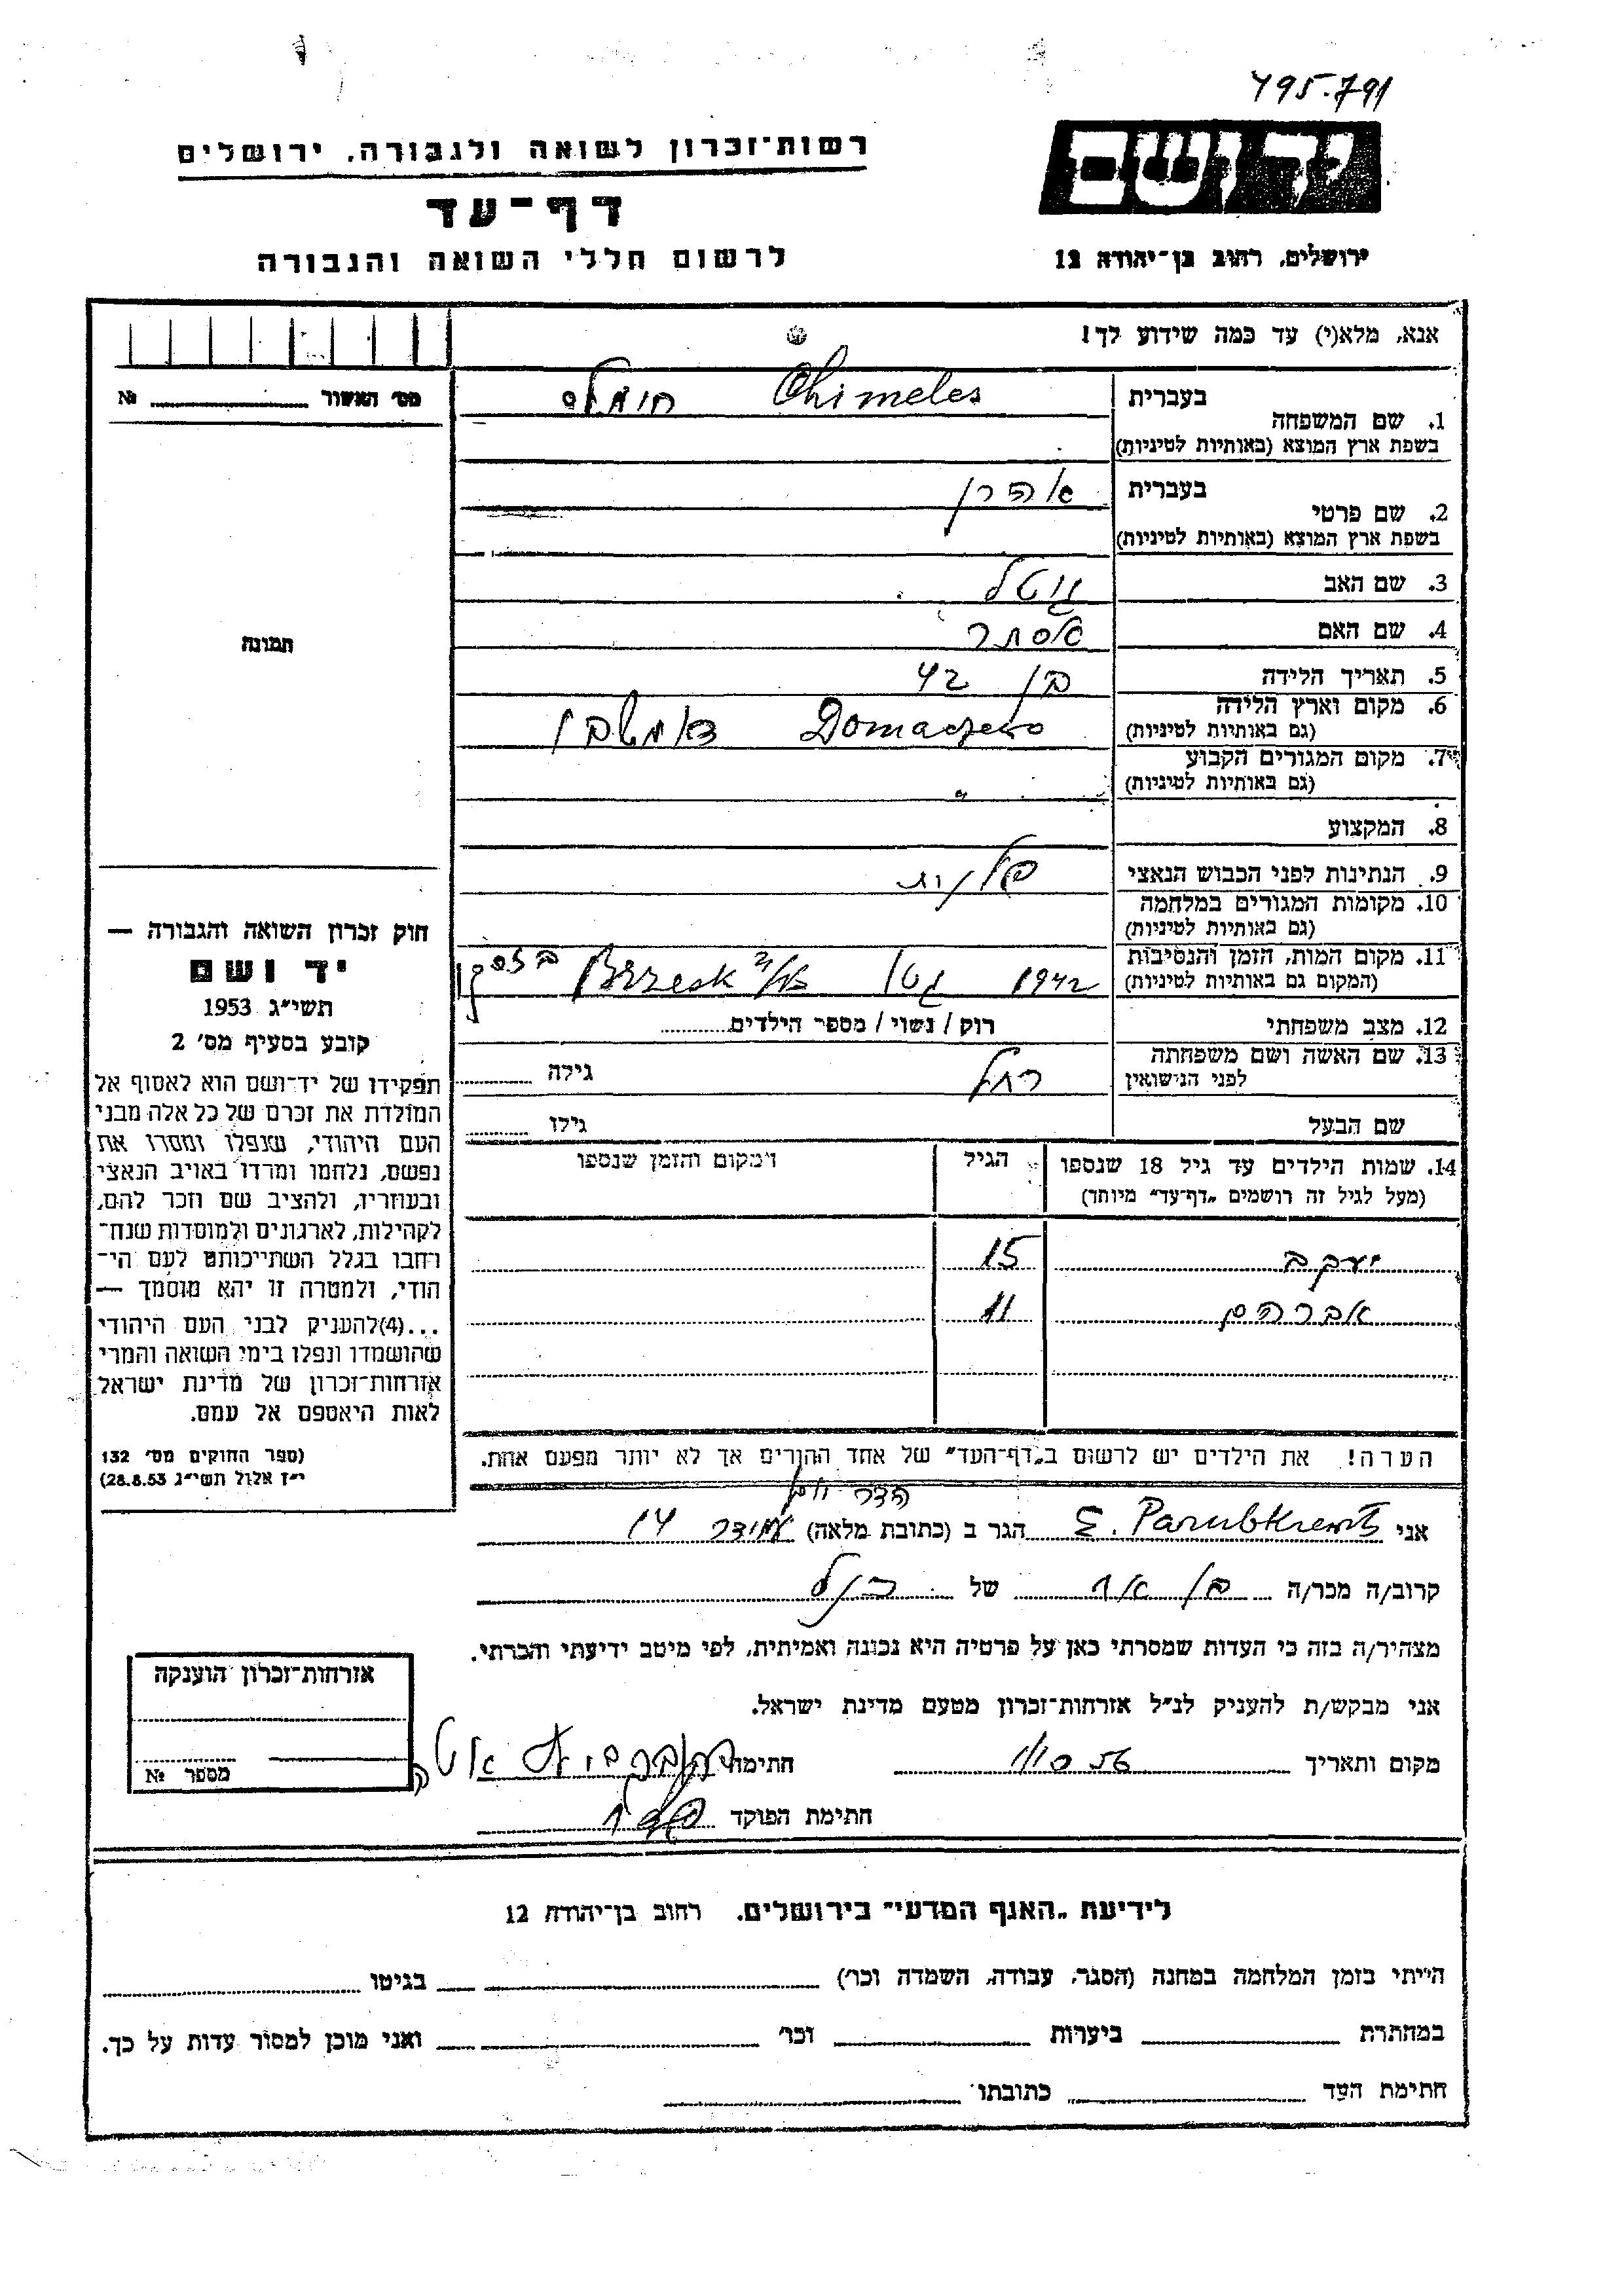 495.791
יד ושם
ירושלים, רחוב בן־יהודה 12
רשות־זכרון לשואה ולגבורה, ירושלים
דף־עד
לרשום חללי השואה והגבורה
אנא, מלא(י) עד כמה שידוע לך!
מס' האשור № 
1. שם המשפחה
בעברית חומלס Chimeles
בשפת ארץ המוצא (באותיות לטיניות)
2. שם פרטי
בעברית אהרן
בשפת ארץ המוצא (באותיות לטיניות)
3. שם האב
4. שם האם אסתר
5. תאריך הלידה בן 42
6. מקום וארץ הלידה Domaczewo
(גם באותיות לטיניות)
7. מקום המגורים הקבוע "
(גם באותיות לטיניות)
8. המקצוע
9. הנתינות לפני הכבוש הנאצי
10. מקומות המגורים במלחמה
(גם באותיות לטיניות)
11. מקום המות, הזמן והנסיבות 1942 גטו
(המקום גם באותיות לטיניות)
12. מצב משפחתי רוק / נשוי / מספר הילדים
13. שם האשה ושם משפחתה רחל גילה
לפני הנישואין
שם הבעל גילו
14. שמות הילדים עד גיל 18 שנספו הגיל המקום והזמן שנספו
(מעל לגיל זה רושמים "דף־עד" מיוחד)
יעקב 15
אברהם 11
הערה! את הילדים יש לרשום ב"דף־העד" של אחד ההורים אך לא יותר מפעם אחת.
תמונה
חוק זכרון השואה והגבורה —
יד ושם
תשי"ג 1953
קובע בסעיף מס' 2
תפקידו של יד־ושם הוא לאסוף אל
המולדת את זכרם של כל אלה מבני
העם היהודי, שנפלו ומסרו את
נפשם, נלחמו ומרדו באויב הנאצי
ובעוזריו, ולהציב שם וזכר להם,
לקהילות, לארגונים ולמוסדות שנח־
רחבו בגלל השתייכותם לעם הי־
הודי, ולמטרה זו יהא מוסמך —
...(4)להעניק לבני העם היהודי
שהושמדו ונפלו בימי השואה והמרי
אזרחות־זכרון של מדינת ישראל
לאות היאספם אל עמם.
(ספר החוקים מס' 132
י"ז אלול תשי"ג 28.8.53)
אני הגר ב (כתובת מלאה)
קרוב/ה מכר/ה בן אח של
מצהיר/ה בזה כי העדות שמסרתי כאן על פרטיה היא נכונה ואמיתית, לפי מיטב ידיעתי והכרתי.
אני מבקש/ת להעניק לנ"ל אזרחות־זכרון מטעם מדינת ישראל.
מקום ותאריך חתימה
חתימת הפוקד
אזרחות־זכרון הוענקה
מספר №
לידיעת "האגף המדעי" בירושלים, רחוב בן־יהודה 12
הייתי בזמן המלחמה במחנה (הסגר, עבודה, השמדה וכר') בגיטו
במחתרת ביערות וכר' ואני מוכן למסור עדות על כך.
חתימת העד כתובתו